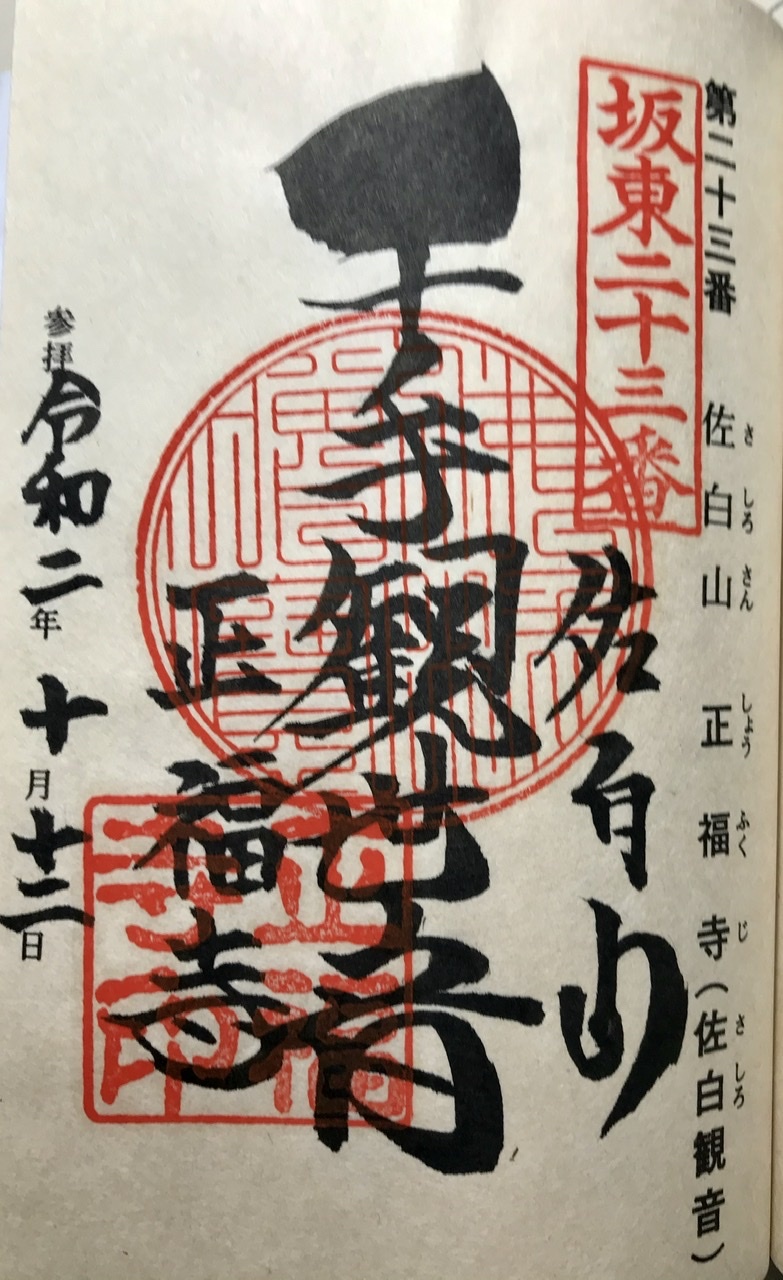 第二十三番 佐白山 正福寺(佐白観音)
さしろさん しょうふくじ さしろ
坂東二十三番
佐白山
千手観世音
正福寺
参拝 令和二年十月十二日
正福寺印